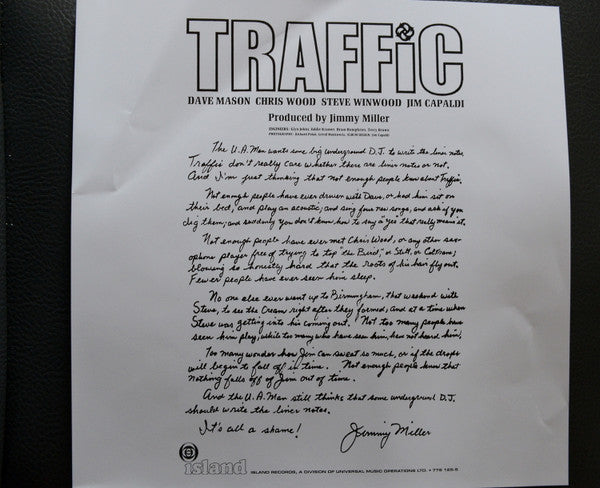 TRAFFiC
DAVE MASON CHRIS WOOD STEVE WINWOOD JIM CAPALDI
Produced by Jimmy Miller
ENGINEERS: Glyn Johns, Eddie Kramer, Brian Humphries, Terry Brown
The U.A. Man wants some big underground D.J. to write the liner notes.
Traffic don't really care whether there are liner notes or not.
And I'm just thinking that not enough people know about Traffic.
Not enough people have ever driven with Dave, or had him sit on
their bed, and play an acoustic, and sing four new songs, and ask if you
dig them; and suddenly you don't know how to say a "yes" that really means it.
Not enough people have ever met Chris Wood, or any other sax-
ophone player free of trying to top "the Bird," or Stitt, or Coltrane;
blowing so honestly hard that the roots of his hair fly out.
Fewer people have ever seen him sleep.
No one else ever went up to Birmingham, that weekend with
Steve, to see the Cream right after they formed, and at a time when
Steve was getting into his coming out. Not too many people have
seen him play, while too many who have seen him, have not heard him.
Too many wonder how Jim can sweat so much, or if the drops
will begin to fall off in time. Not enough people know that
nothing falls off of Jim out of time.
And the U.A. Man still thinks that some underground D.J.
should write the liner notes.
It's all a shame! Jimmy Miller
island ISLAND RECORDS, A DIVISION OF UNIVERSAL MUSIC OPERATIONS LTD. • 778 125-5